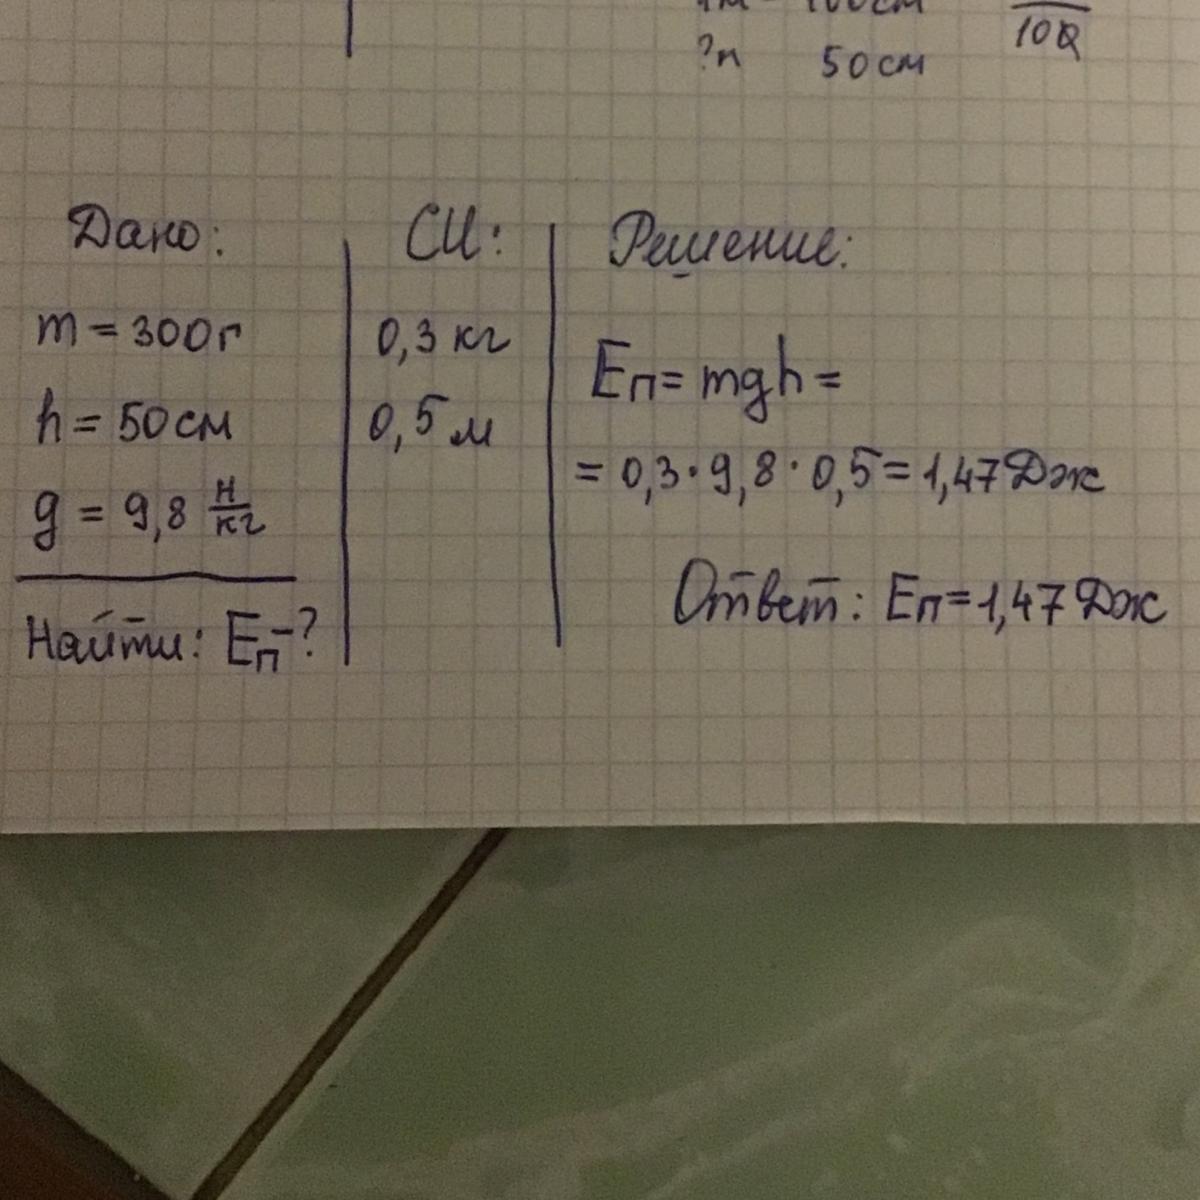 50см
10
Дано:
m = 300г
h = 50см
g = 9,8 Н/кг
Найти: Eп-?
СИ:
0,3 кг
0,5 м
Решение:
Eп = mgh =
= 0,3 · 9,8 · 0,5 = 1,47 Дж
Ответ: Eп = 1,47 Дж